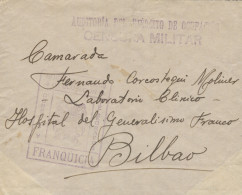 CENSURA MILITAR
Camarada
Fernando Corcostegui Moliner
Laboratorio Clinico-
Hospital del Generalisimo Franco
Bilbao
FRANQUICIA